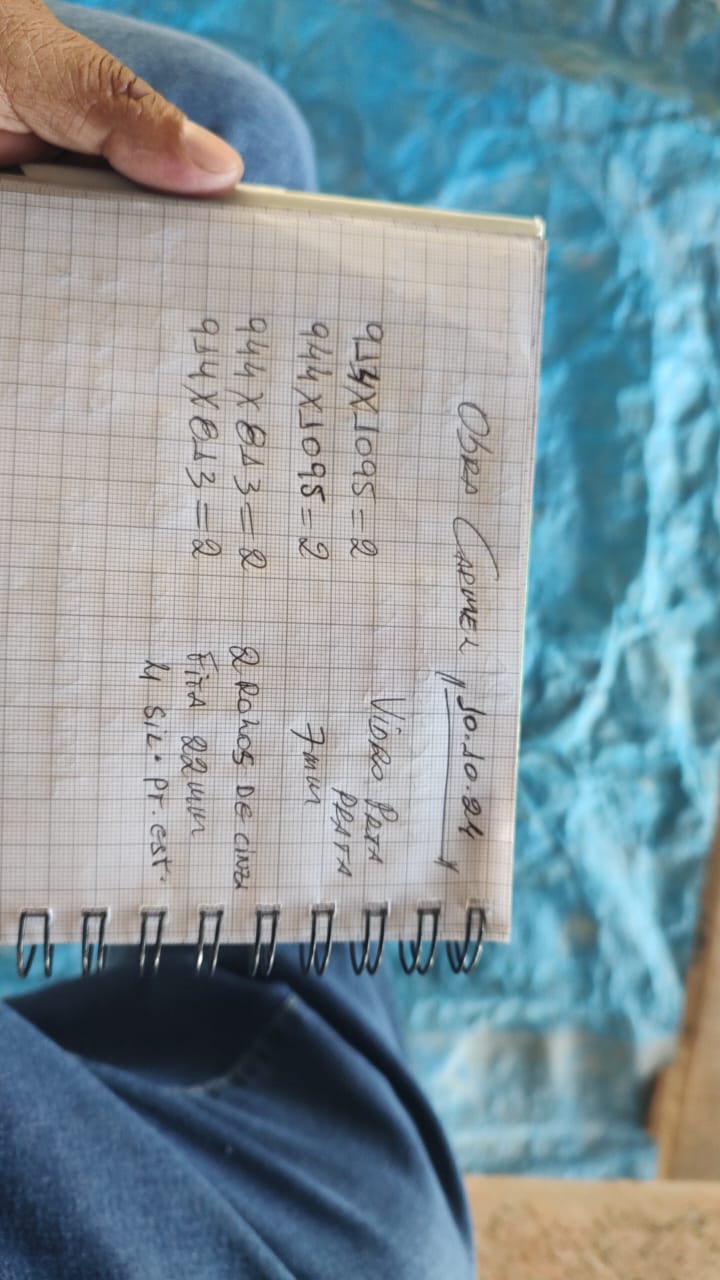 OBRA CARMEL, 10.10.24
914X1095=2 VIDRO PRTA
PRATA
944X1095=2 7mm
944X813=2 2 ROLOS DE CINZA
914X813=2 FITA 22mm
4 SIL. PT. EST.